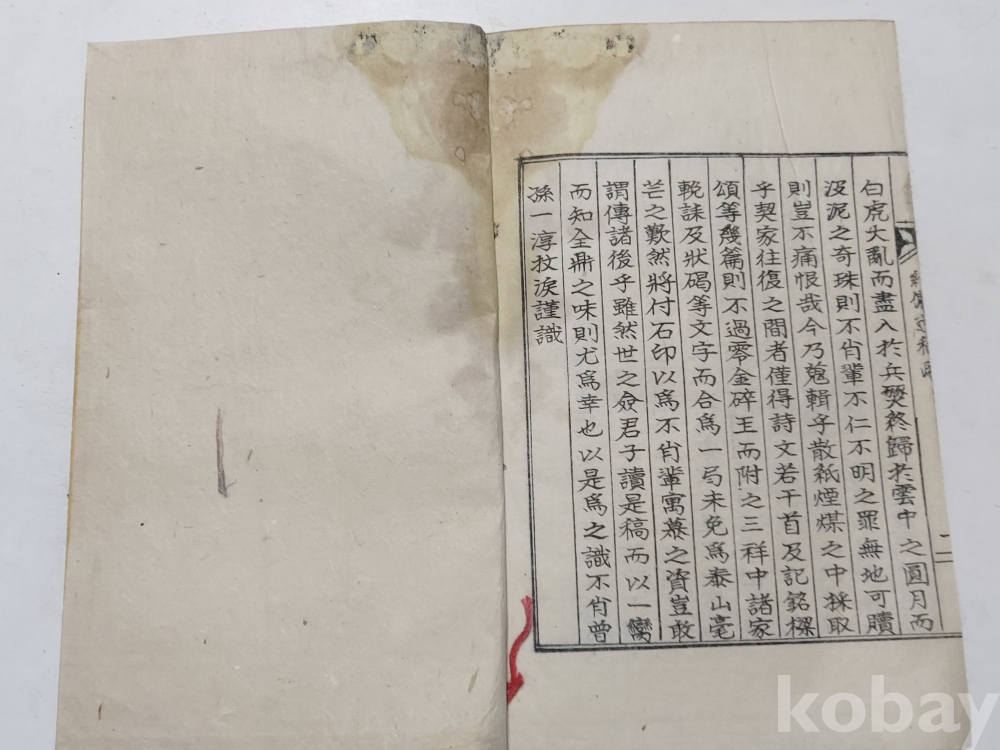 白虎大亂而盡入於兵燹終歸於雲中之圓月而
沒泥之奇珠則不肖輩不仁不明之罪無地可贖
則豈不痛恨哉今乃蒐輯乎散紙煙煤之中採取
乎契家往復之間者僅得詩文若干首及記銘樑
頌等幾篇則不過零金碎玉而附之三祥中諸家
輓誄及狀碣等文字而合爲一局未免爲泰山毫
芒之歎然將付石印以爲不肖輩寓慕之資豈敢
謂傳諸後乎雖然世之僉君子讀是稿而以一臠
而知全鼎之味則尤爲幸也以是爲之識不肖曾
孫一淳抆淚謹識
二
kobay